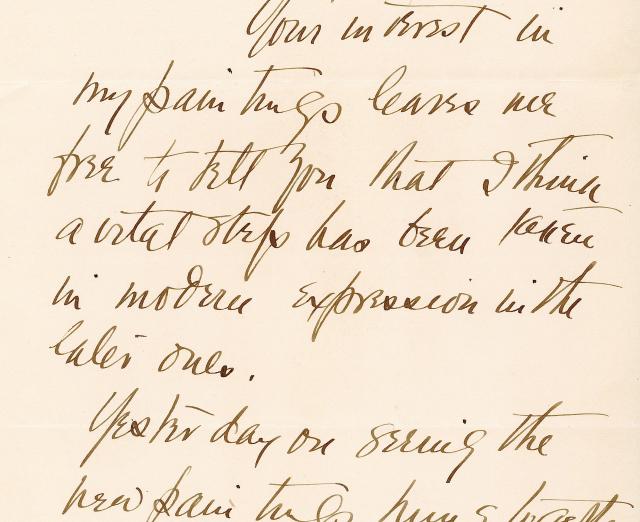 Your interest in
my paintings leaves me
free to tell you that I think
a vital step has been taken
in modern expression in the
later ones.
Yesterday on seeing the
new paintings hung together